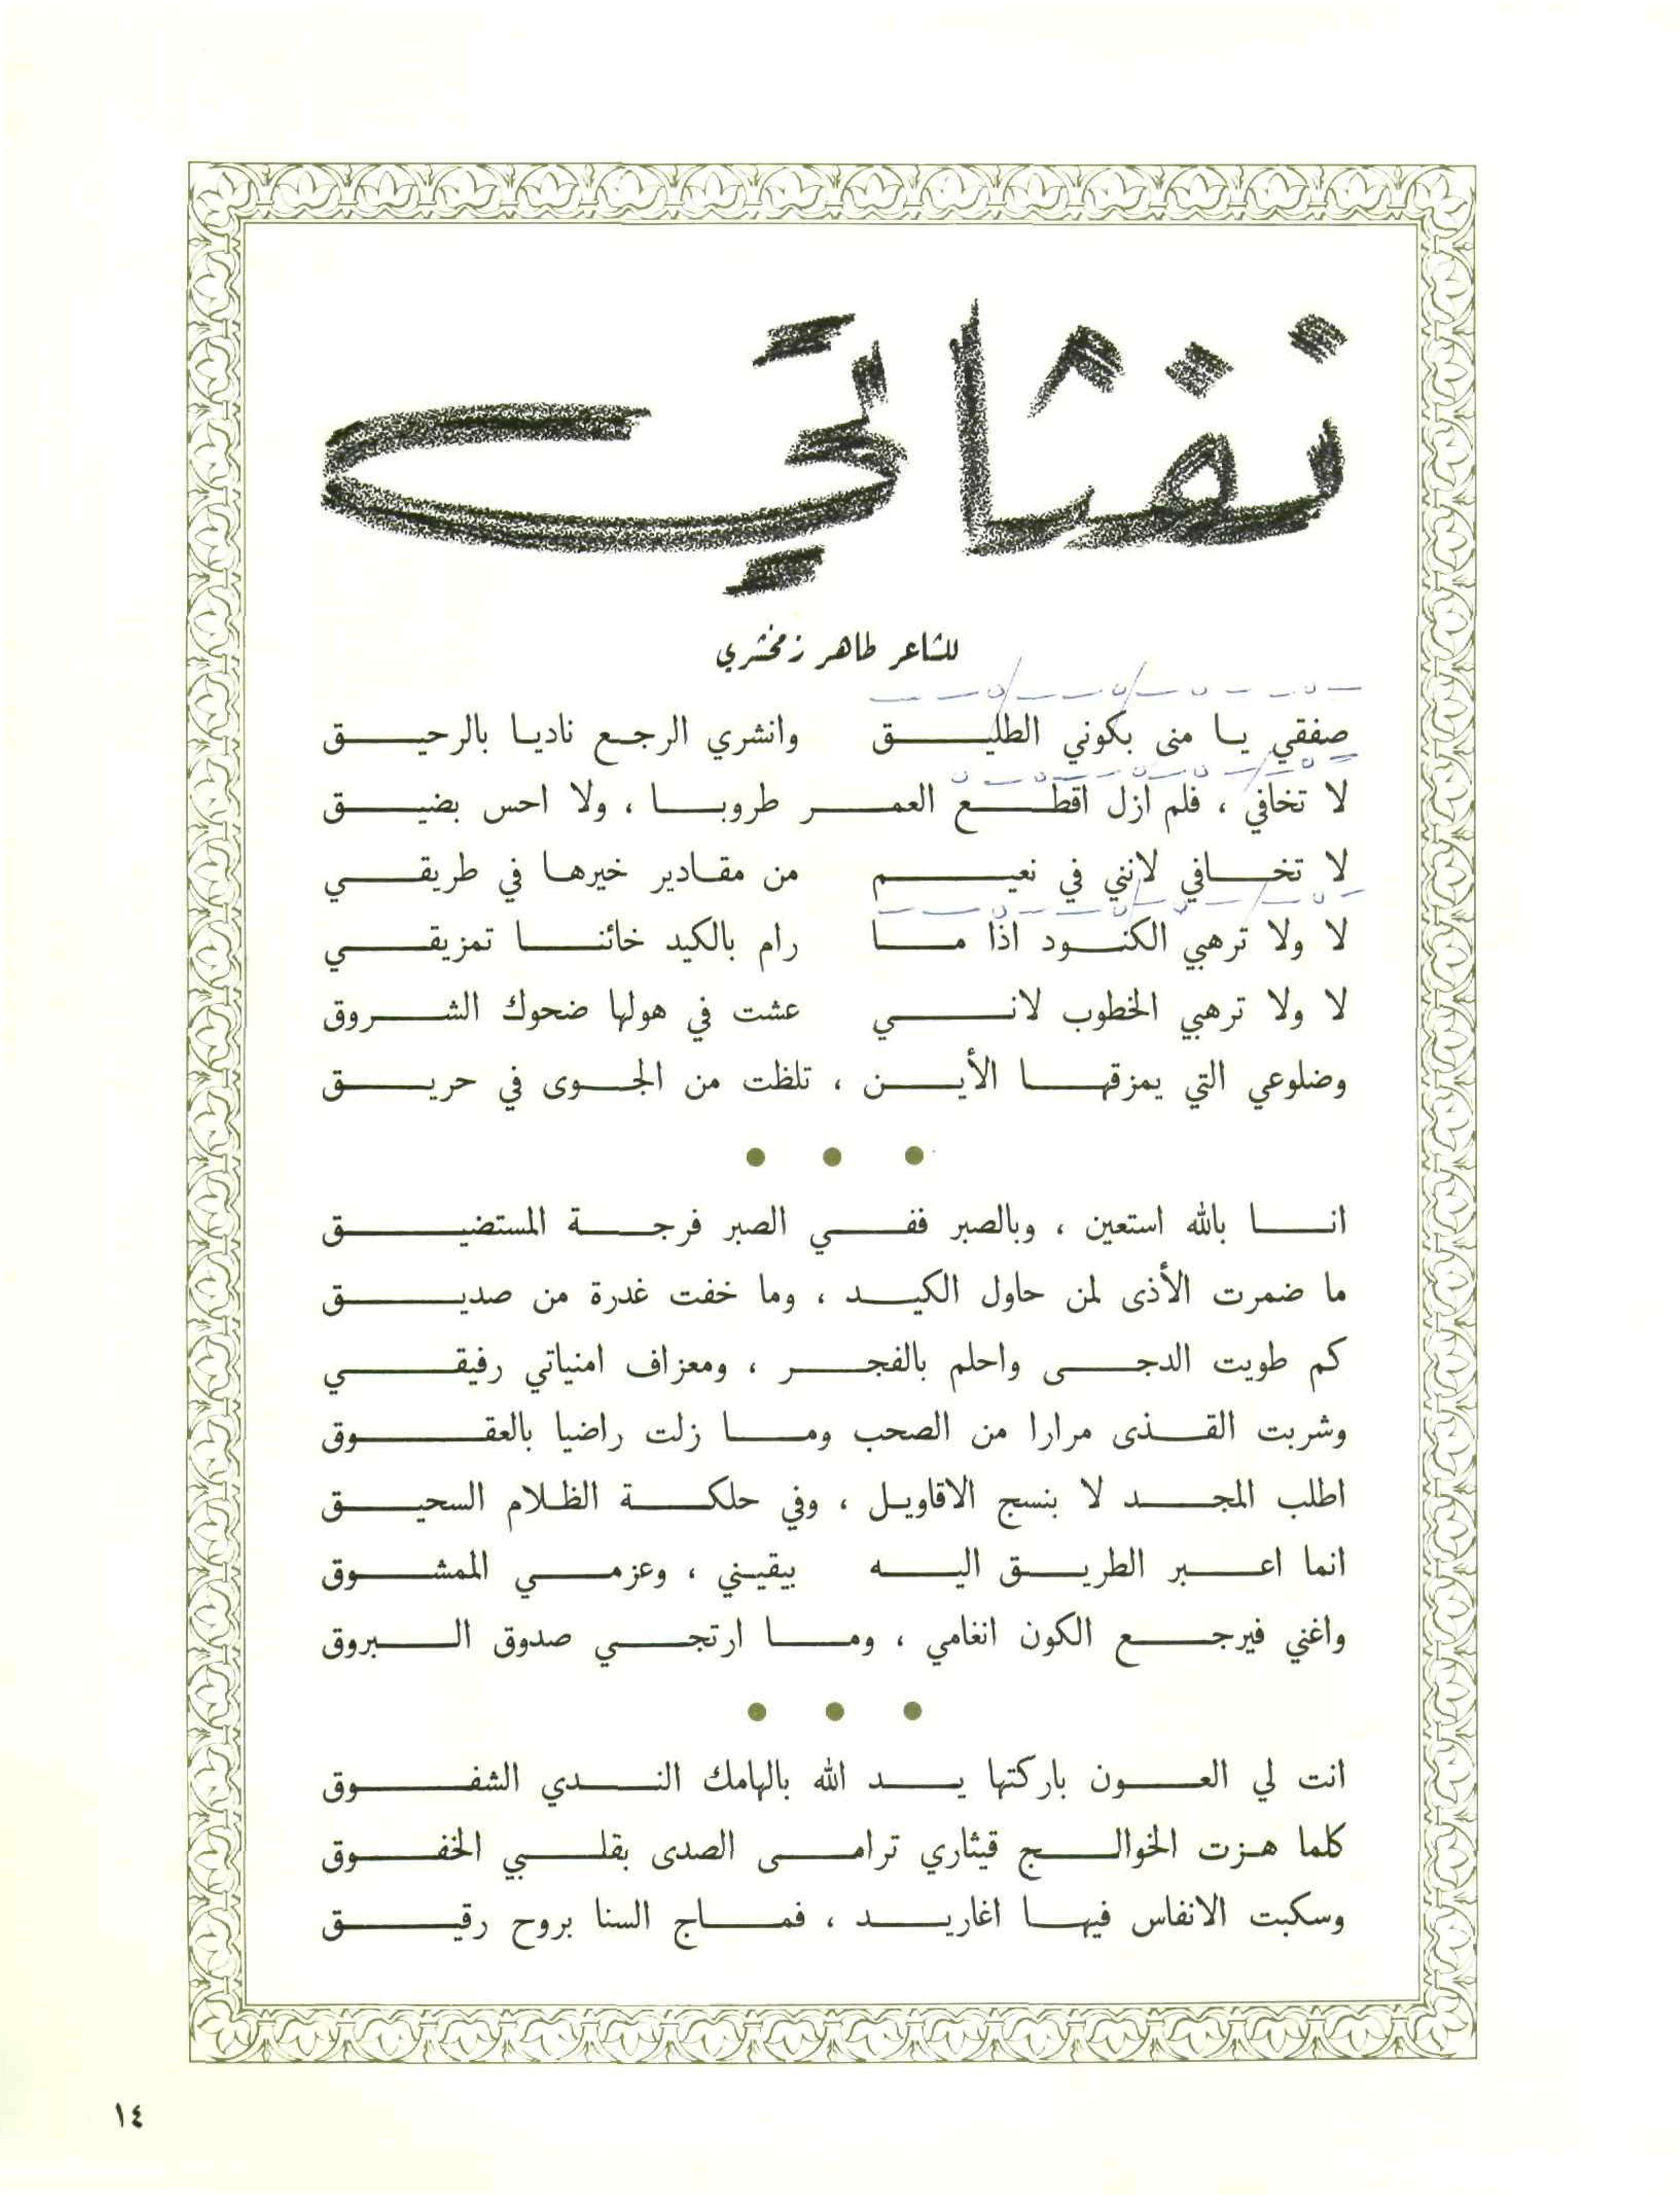 نفثاتي
للشاعر طاهر زمخشري
صفقي يا منى بكوني الطليق وانشري الرجع ناديا بالرحيق
لا تخافي ، فلم ازل اقطع العمر طروبا ، ولا احس بضيق
لا تخافي لانني في نعيم من مقادير خيرها في طريقي
لا ولا ترهبي الكنود اذا ما رام بالكيد خائنا تمزيقي
لا ولا ترهبي الخطوب لاني عشت في هولها ضحوك الشروق
وضلوعي التي يمزقها الأين ، تلظت من الجوى في حريق
انا بالله استعين ، وبالصبر ففي الصبر فرجة المستضيق
ما ضمرت الأذى لمن حاول الكيد ، وما خفت غدرة من صديق
كم طويت الدجى واحلم بالفجر ، ومعزاف امنياتي رفيقي
وشربت القذى مرارا من الصحب وما زلت راضيا بالعقوق
اطلب المجد لا بنسج الاقاويل ، وفي حلكة الظلام السحيق
انما اعبر الطريق اليه بيقيني ، وعزمي الممشوق
واغني فيرجع الكون انغامي ، وما ارتجي صدوق البروق
انت لي العون باركتها يد الله بالهامك الندي الشفوق
كلما هزت الخوالج قيثاري ترامى الصدى بقلبي الخفوق
وسكبت الانفاس فيها اغاريد ، فماج السنا بروح رقيق
١٤